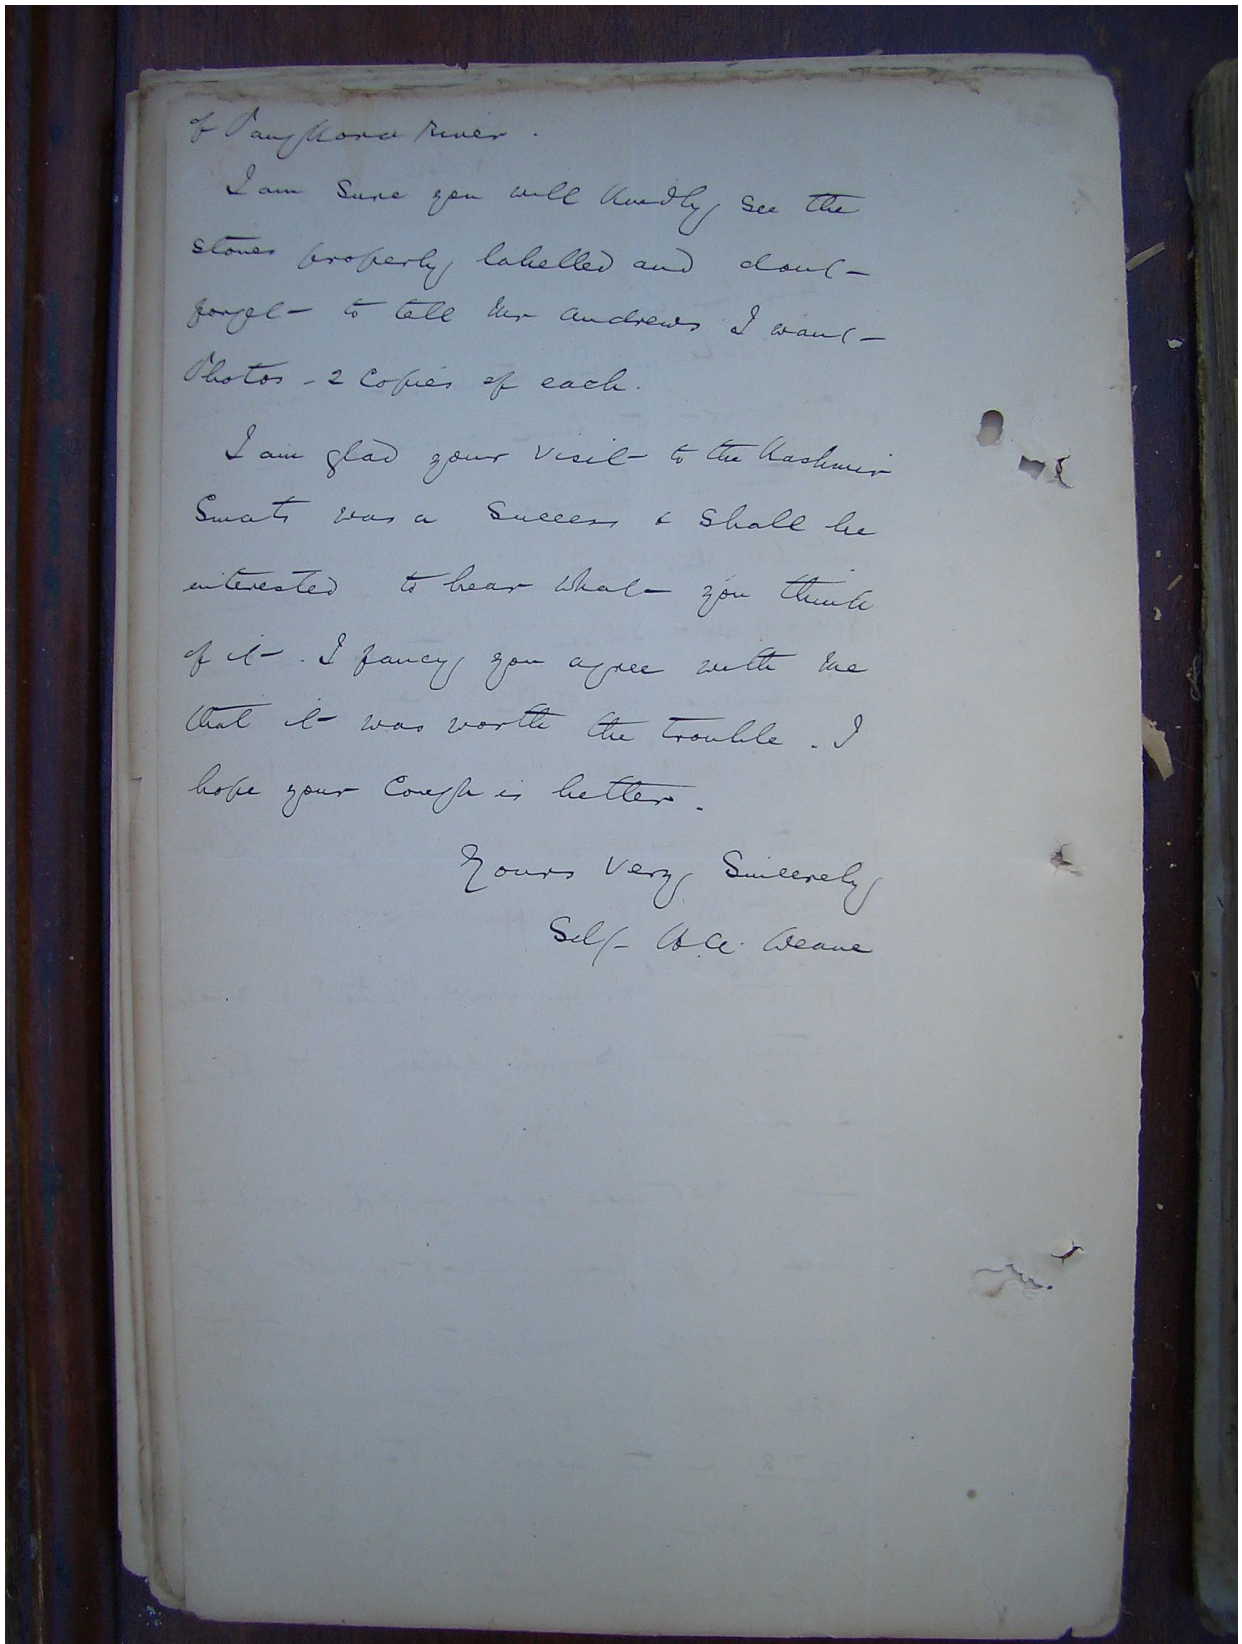 of Pangkora River.
I am sure you will kindly see the
stones properly labelled and dont
forget to tell Mr Andrews I want
Photos - 2 Copies of each.
I am glad your visit to the Kashmir
Smats was a success & shall be
interested to hear what you think
of it. I fancy you agree with me
that it was worth the trouble. I
hope your Cough is better.
Yours Very Sincerely
H.A. Deane